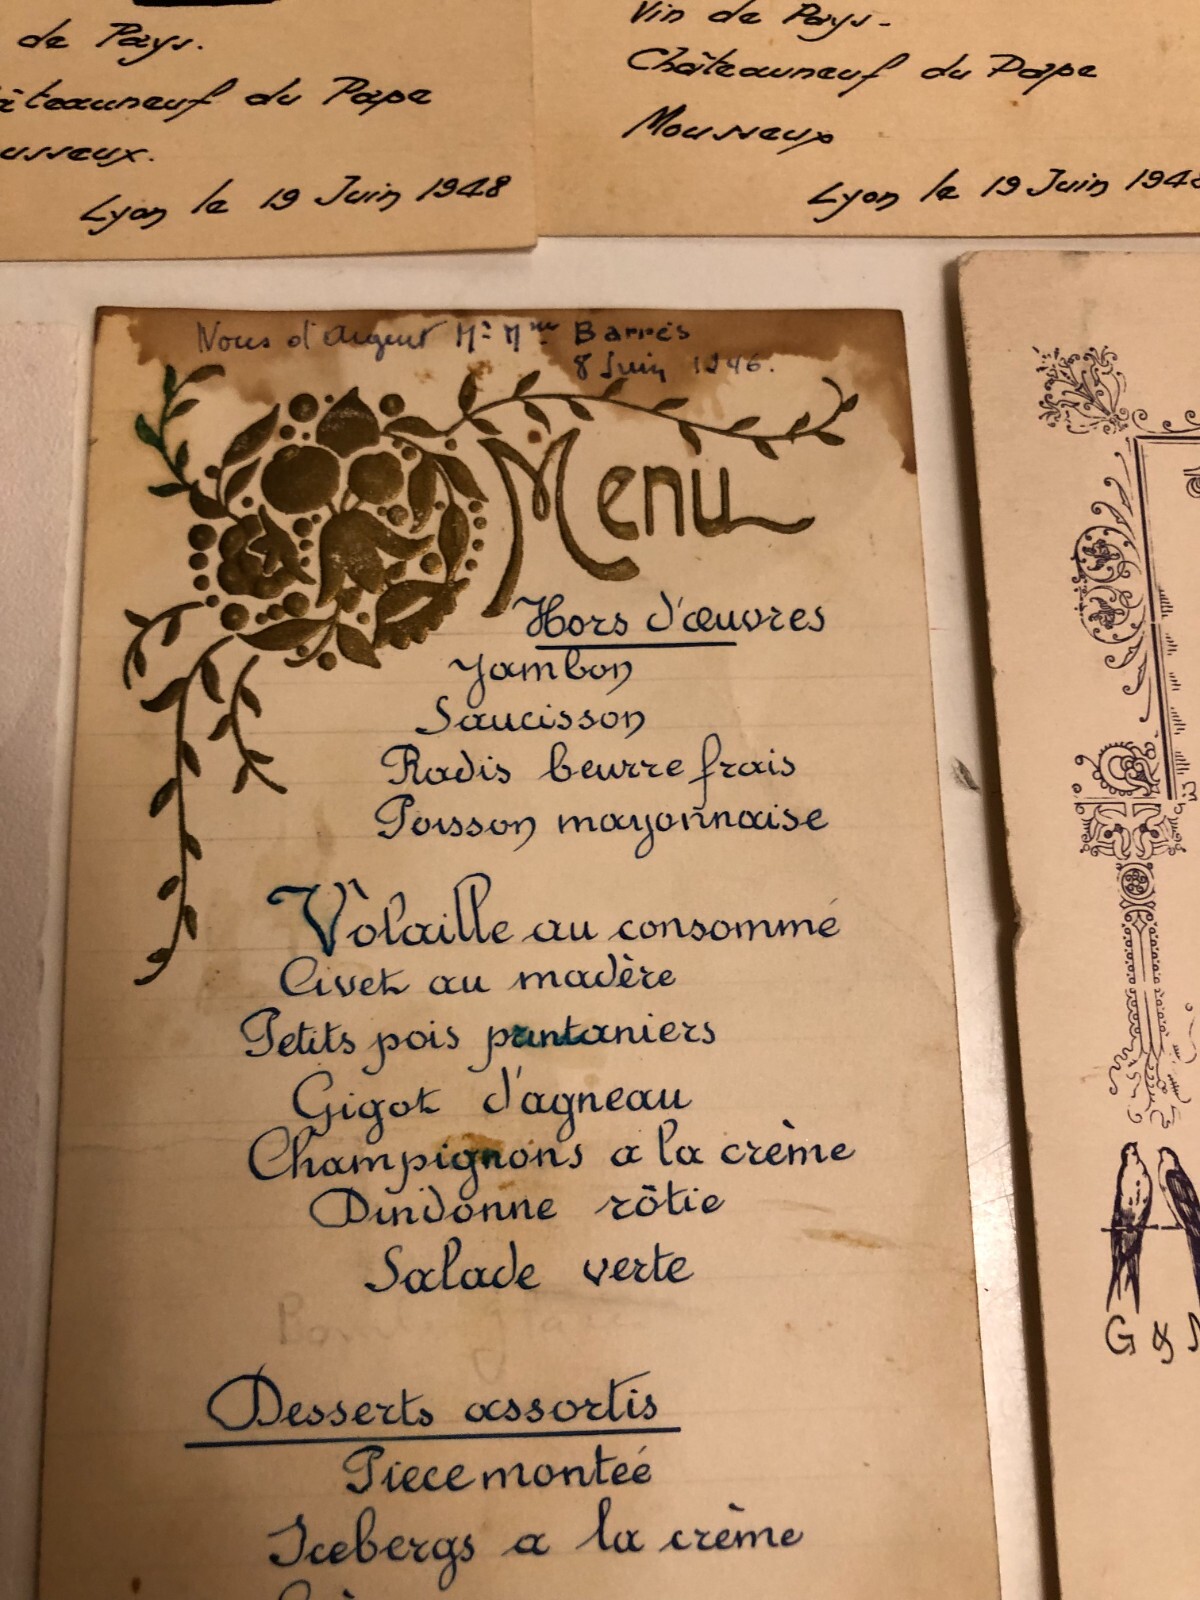 de Pays.
Châteauneuf du Pape
Mousseux.
Lyon le 19 Juin 1948
Vin de Pays.
Châteauneuf du Pape
Mousseux
Lyon le 19 Juin 1948
Noces d'Argent Mr Mme Barrès
8 Juin 1946.
Menu
Hors d'œuvres
Jambon
Saucisson
Radis beurre frais
Poisson mayonnaise
Volaille au consommé
Civet au madère
Petits pois printaniers
Gigot d'agneau
Champignons a la crème
Dindonne rôtie
Salade verte
Desserts assortis
Piece monteé
Icebergs a la crème
G &